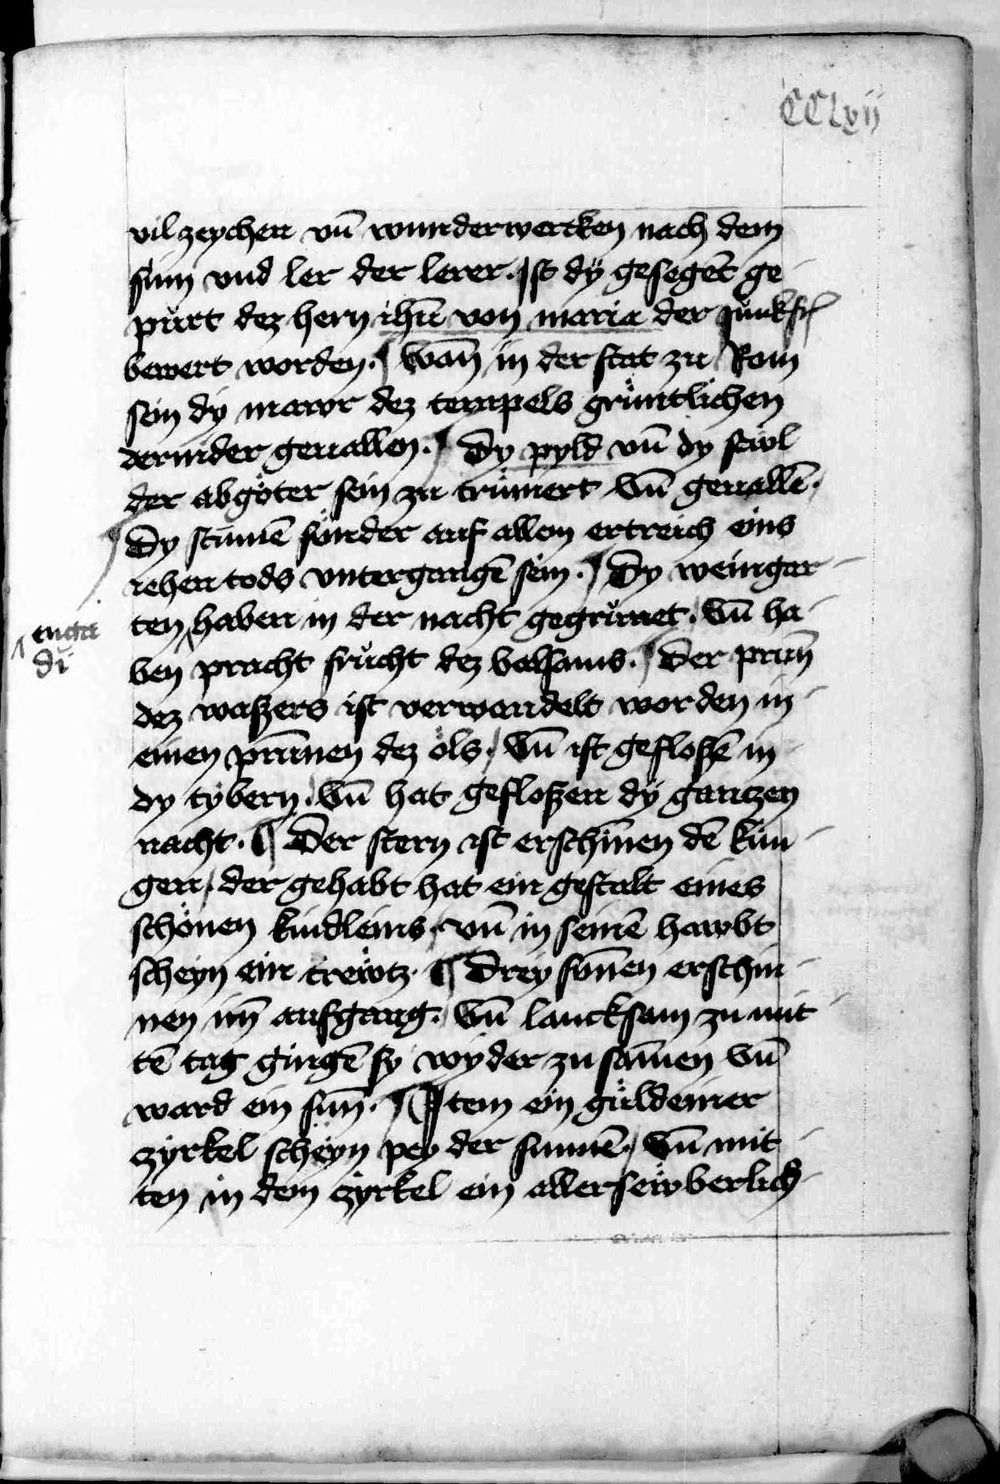 CClxii
vil zeychen vn̄ wunderwercken nach dem
sinn vnd ler der lerer. Ist dy gesegēt ge
purt dez hern ihū von maria der Junkfr
bewert worden. ¶ Wan̄ in der stat zu Rom
sein dy mawr dez tempels grüntlichen
dernider geuallen. ¶ Dy pyld vn̄ dy sewl
der abgöter sein zu trümert Vn̄ geuallē.
¶ Dy stūmē sünder auf allem ertreich eins
iehen tods vntergangē sein. ¶ Dy weingar
ten haben in der nacht gegrünet. Vn̄ ha
engadi
ben pracht frücht dez balsams. ¶ Der prun̄
dez waszers ist verwandelt worden in
einen prūnen dez öls, Vn̄ ist gefloszē in
dy tybern. Vn̄ hat geflossen dy ganczen
nacht. ¶ Der stern ist erschinen dē kün
gen, der gehabt hat ein gestalt eines
schönen kindleins, vn̄ in seinē hawbt
scheyn ein crewtz. ¶ Drey sūnen erschin
nen im̄ aufgang. Vn̄ lancksam zu mit
tē tag gingē sy wyder zu sāmen Vn̄
ward ein sun̄. ¶ Item ein güldeiner
zyrkel scheyn pey der sunnē, Vn̄ mit
ten in dem zyrkel ein allersewberlich